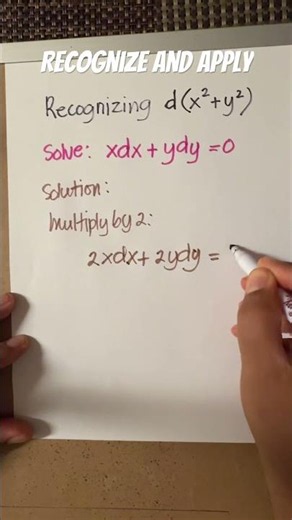 RECOGNIZE AND APPLY
Recognizing d(x²+y²)
Solve: xdx+ydy=0
Solution:
Multiply by 2:
2xdx+2ydy=